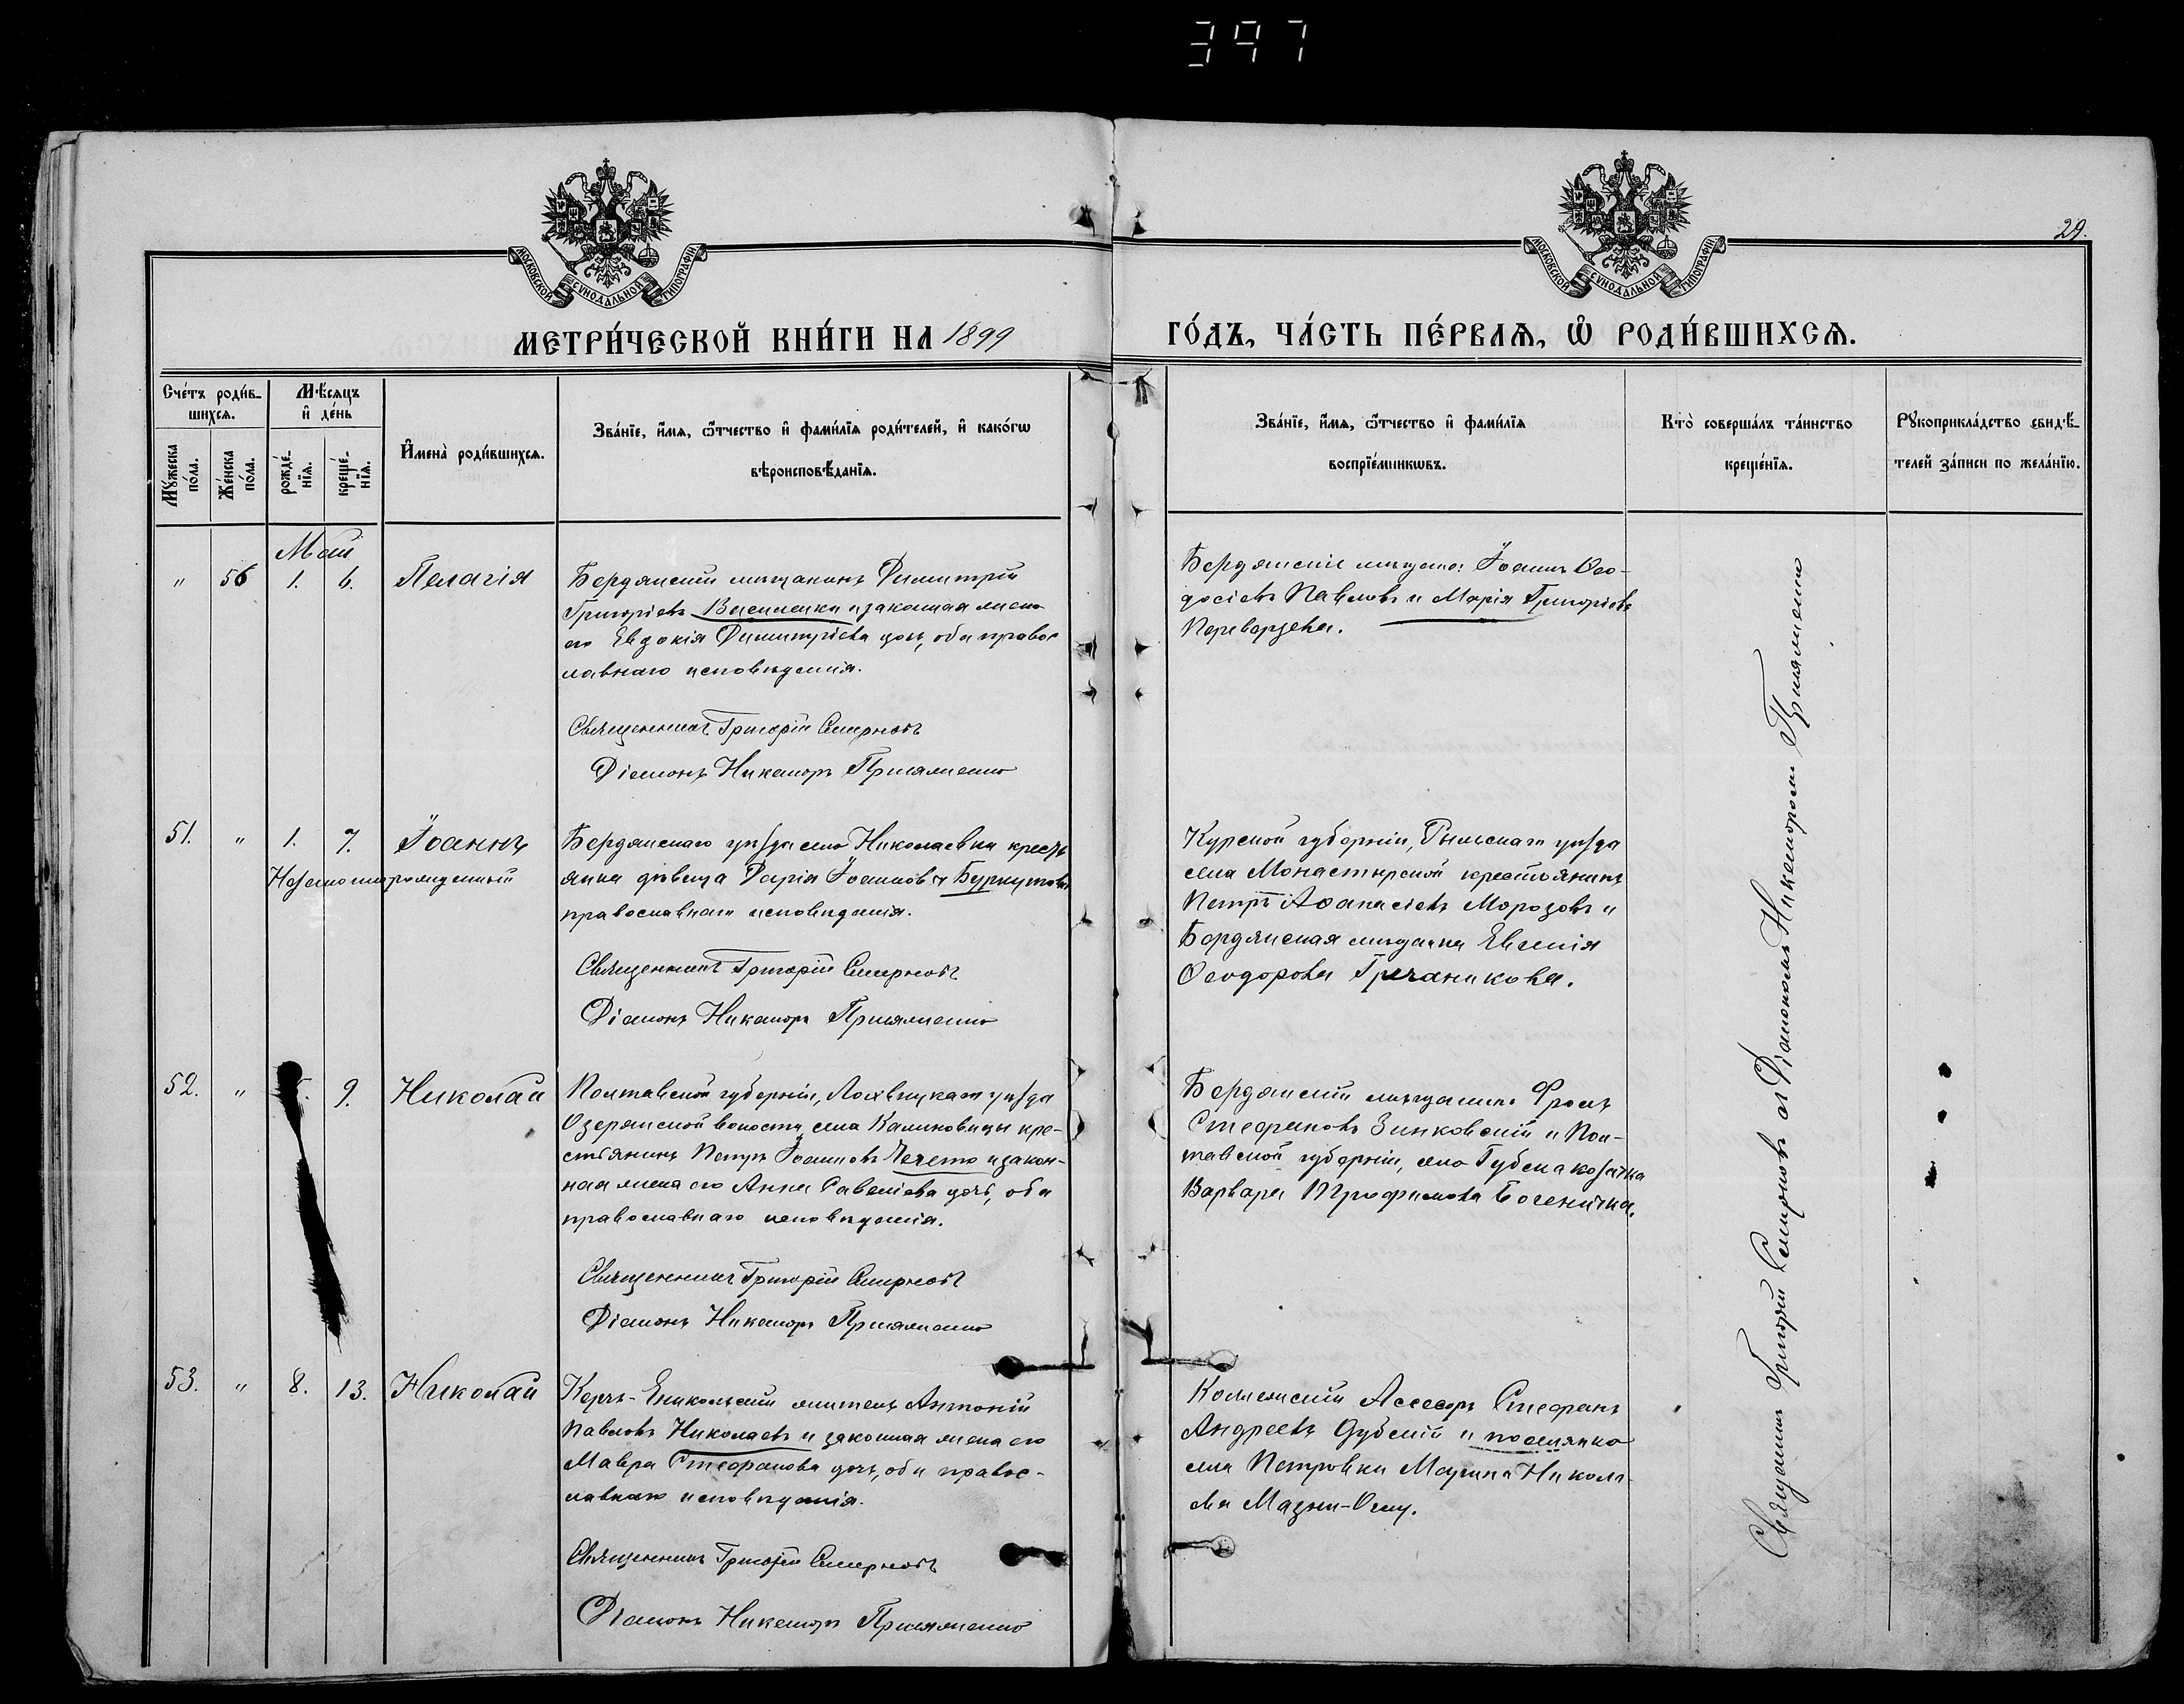 397
29.
МОСКОВСКОЙ СѴНОДАЛЬНОЙ ТИПОГРАФІИ
МОСКОВСКОЙ СѴНОДАЛЬНОЙ ТИПОГРАФІИ
МЕТРИ́ЧЕСКОЙ КНИ́ГИ НА 1899
ГО́ДЪ, ЧА́СТЬ ПЕ́РВАѦ, Ѡ҆ РОДИ́ВШИХСѦ.
Сче́тъ роди́в-
шихсѧ.
Мꙋ́жеска по́ла.
Же́нска по́ла.
Мѣ́сѧцъ
и҆ де́нь
рожде́-нїѧ.
креще́-нїѧ.
И҆мена̀ роди́вшихсѧ.
Зва́нїе, и҆́мѧ, ѻ҆́тчество и҆ фами́лїѧ роди́телей, и҆ како́гѡ
вѣроисповѣ́данїѧ.
Зва́нїе, и҆́мѧ, ѻ҆́тчество и҆ фами́лїѧ
воспрїе́мникѡвъ.
Кто̀ соверша́лъ та́инство
креще́нїѧ.
Рꙋкоприкла́дство свидѣ́-
телей за́писи по жела́нїю.
Май
" 56 1. 6. Пелагія
Бердянскій мѣщанинъ Димитрій
Григоріевъ Василенко и законная жена
его Евдокія Димитріева дочь, оба правос
лавнаго исповѣданія.
Священникъ Григорій Смирновъ
Діаконъ Никаноръ
Бердянскіе мѣщане: Іоаннъ Ѳео-
досіевъ Павловъ и Марія Григоріева
Переварзева.
51. " 1. 7. Іоаннъ
Незаконнорожденный
Бердянскаго уѣзда село Николаевка кресть
янка дѣвица Дарія Іоаннова
православнаго исповѣданія.
Священникъ Григорій Смирновъ
Діаконъ Никаноръ
Курской губерніи, Рыльскаго уѣзда
села Монастырской крестьянинъ
Петръ Аѳанасіевъ Морозовъ и
Бердянская мѣщанка Евгенія
Ѳеодорова Гречаникова.
52. " 9. Николай
Полтавской губерніи, Лохвицкаго уѣзда
Озерянской волости, села Калиновицы кре-
стьянинъ Петръ Іоанновъ и закон-
ная жена его Анна Савеліева дочь, оба
православнаго исповѣданія.
Священникъ Григорій Смирновъ
Діаконъ Никаноръ
Бердянскій мѣщанинъ Фролъ
Стефановъ Зинковскій и Пол-
тавской губерніи, село Губска козачка
Варвара Трофимова
53. " 8. 13. Николай
Керчь-Еникольскій житель Антоній
Павловъ Николаевъ и законная жена его
Мавра Стефанова дочь, оба правос-
лавнаго исповѣданія.
Священникъ Григорій Смирновъ
Діаконъ Никаноръ
Коллежскій Ассесоръ Стефанъ
Андреевъ Дубскій и поселянка
села Петровки Марина Никола-
ева
Священникъ Григорій Смирновъ съ Діакономъ Никаноромъ